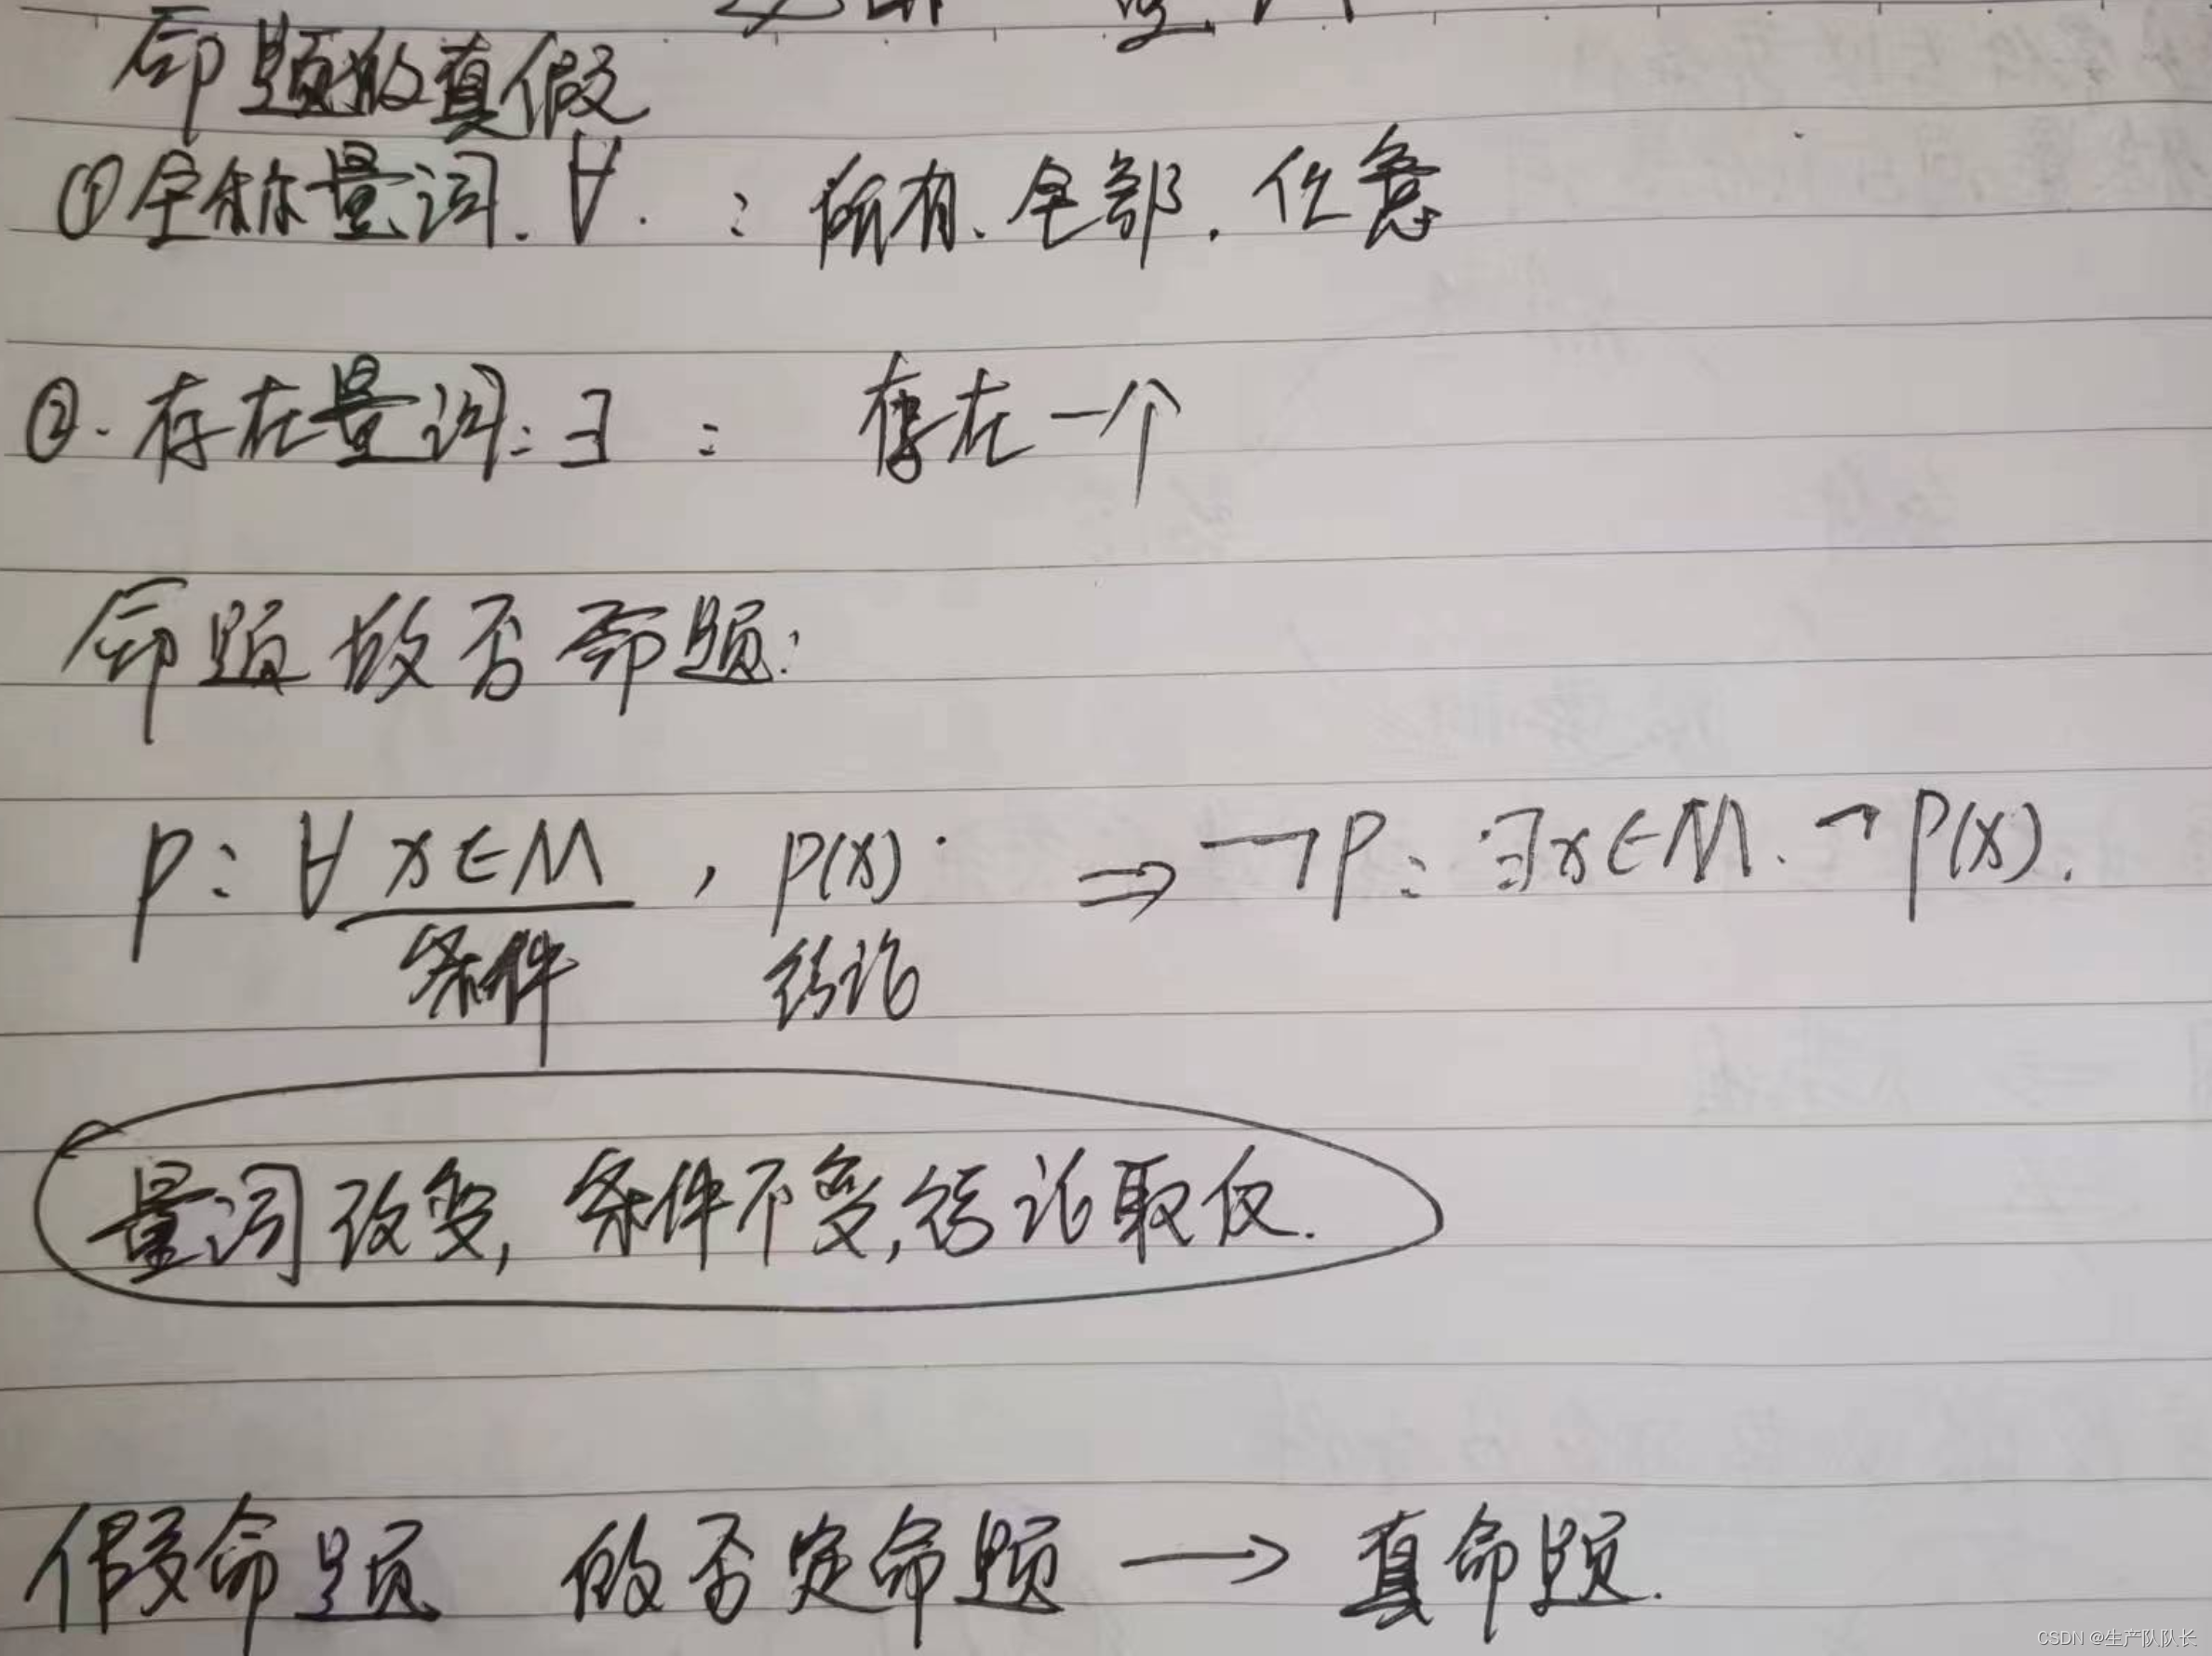 命题的真假
①全称量词. ∀. : 所有、全部. 任意
②. 存在量词: ∃ : 存在一个
命题的否命题:
p: ∀ x∈M , p(x). ⇒ ¬p: ∃x∈M. ¬P(x).
条件 结论
量词改变, 条件不变, 结论取反.
假命题 的否定命题 → 真命题.
CSDN @生产队队长